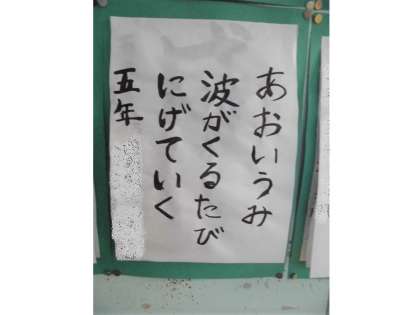 あおいうみ
波がくるたび
にげていく
五年